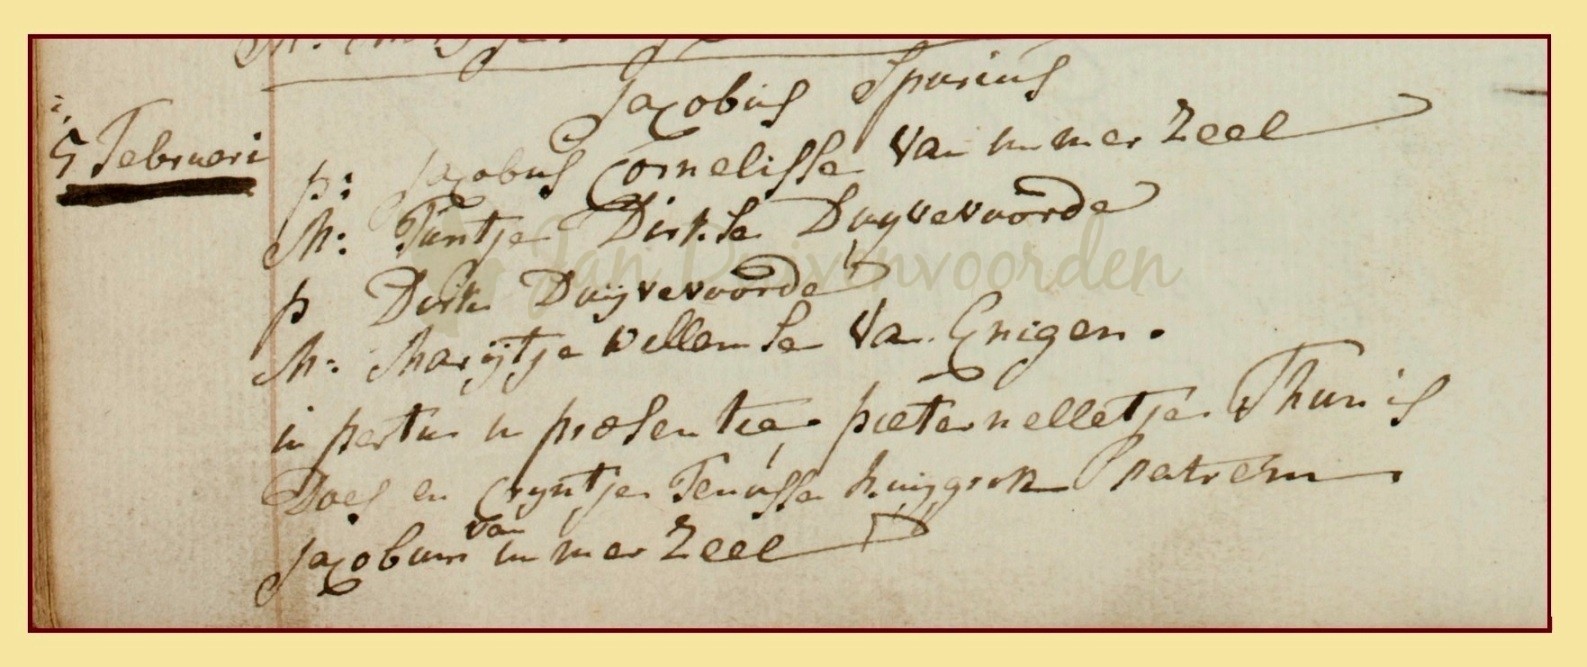 Jacobus Spurius
5 Februari
p: Jacobus Cornelisse Van immerzeel
M: Tüntje Dirkse Duyvevoorde
p Dirk Duijvevoorde
M: Marijtje Willemse Van Enigen.
in partu in præsentia pieternelletje Thunis
Does en Crijntje Teunisse huijgrok patrem
Jacobum van immerzeel
Jan Duivenvoorden